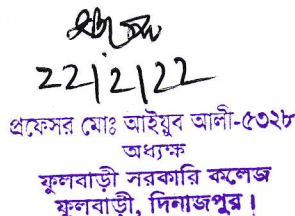 22/2/22
প্রফেসর মোঃ আইয়ুব আলী-৫৩২৮
অধ্যক্ষ
ফুলবাড়ী সরকারি কলেজ
ফুলবাড়ী, দিনাজপুর।